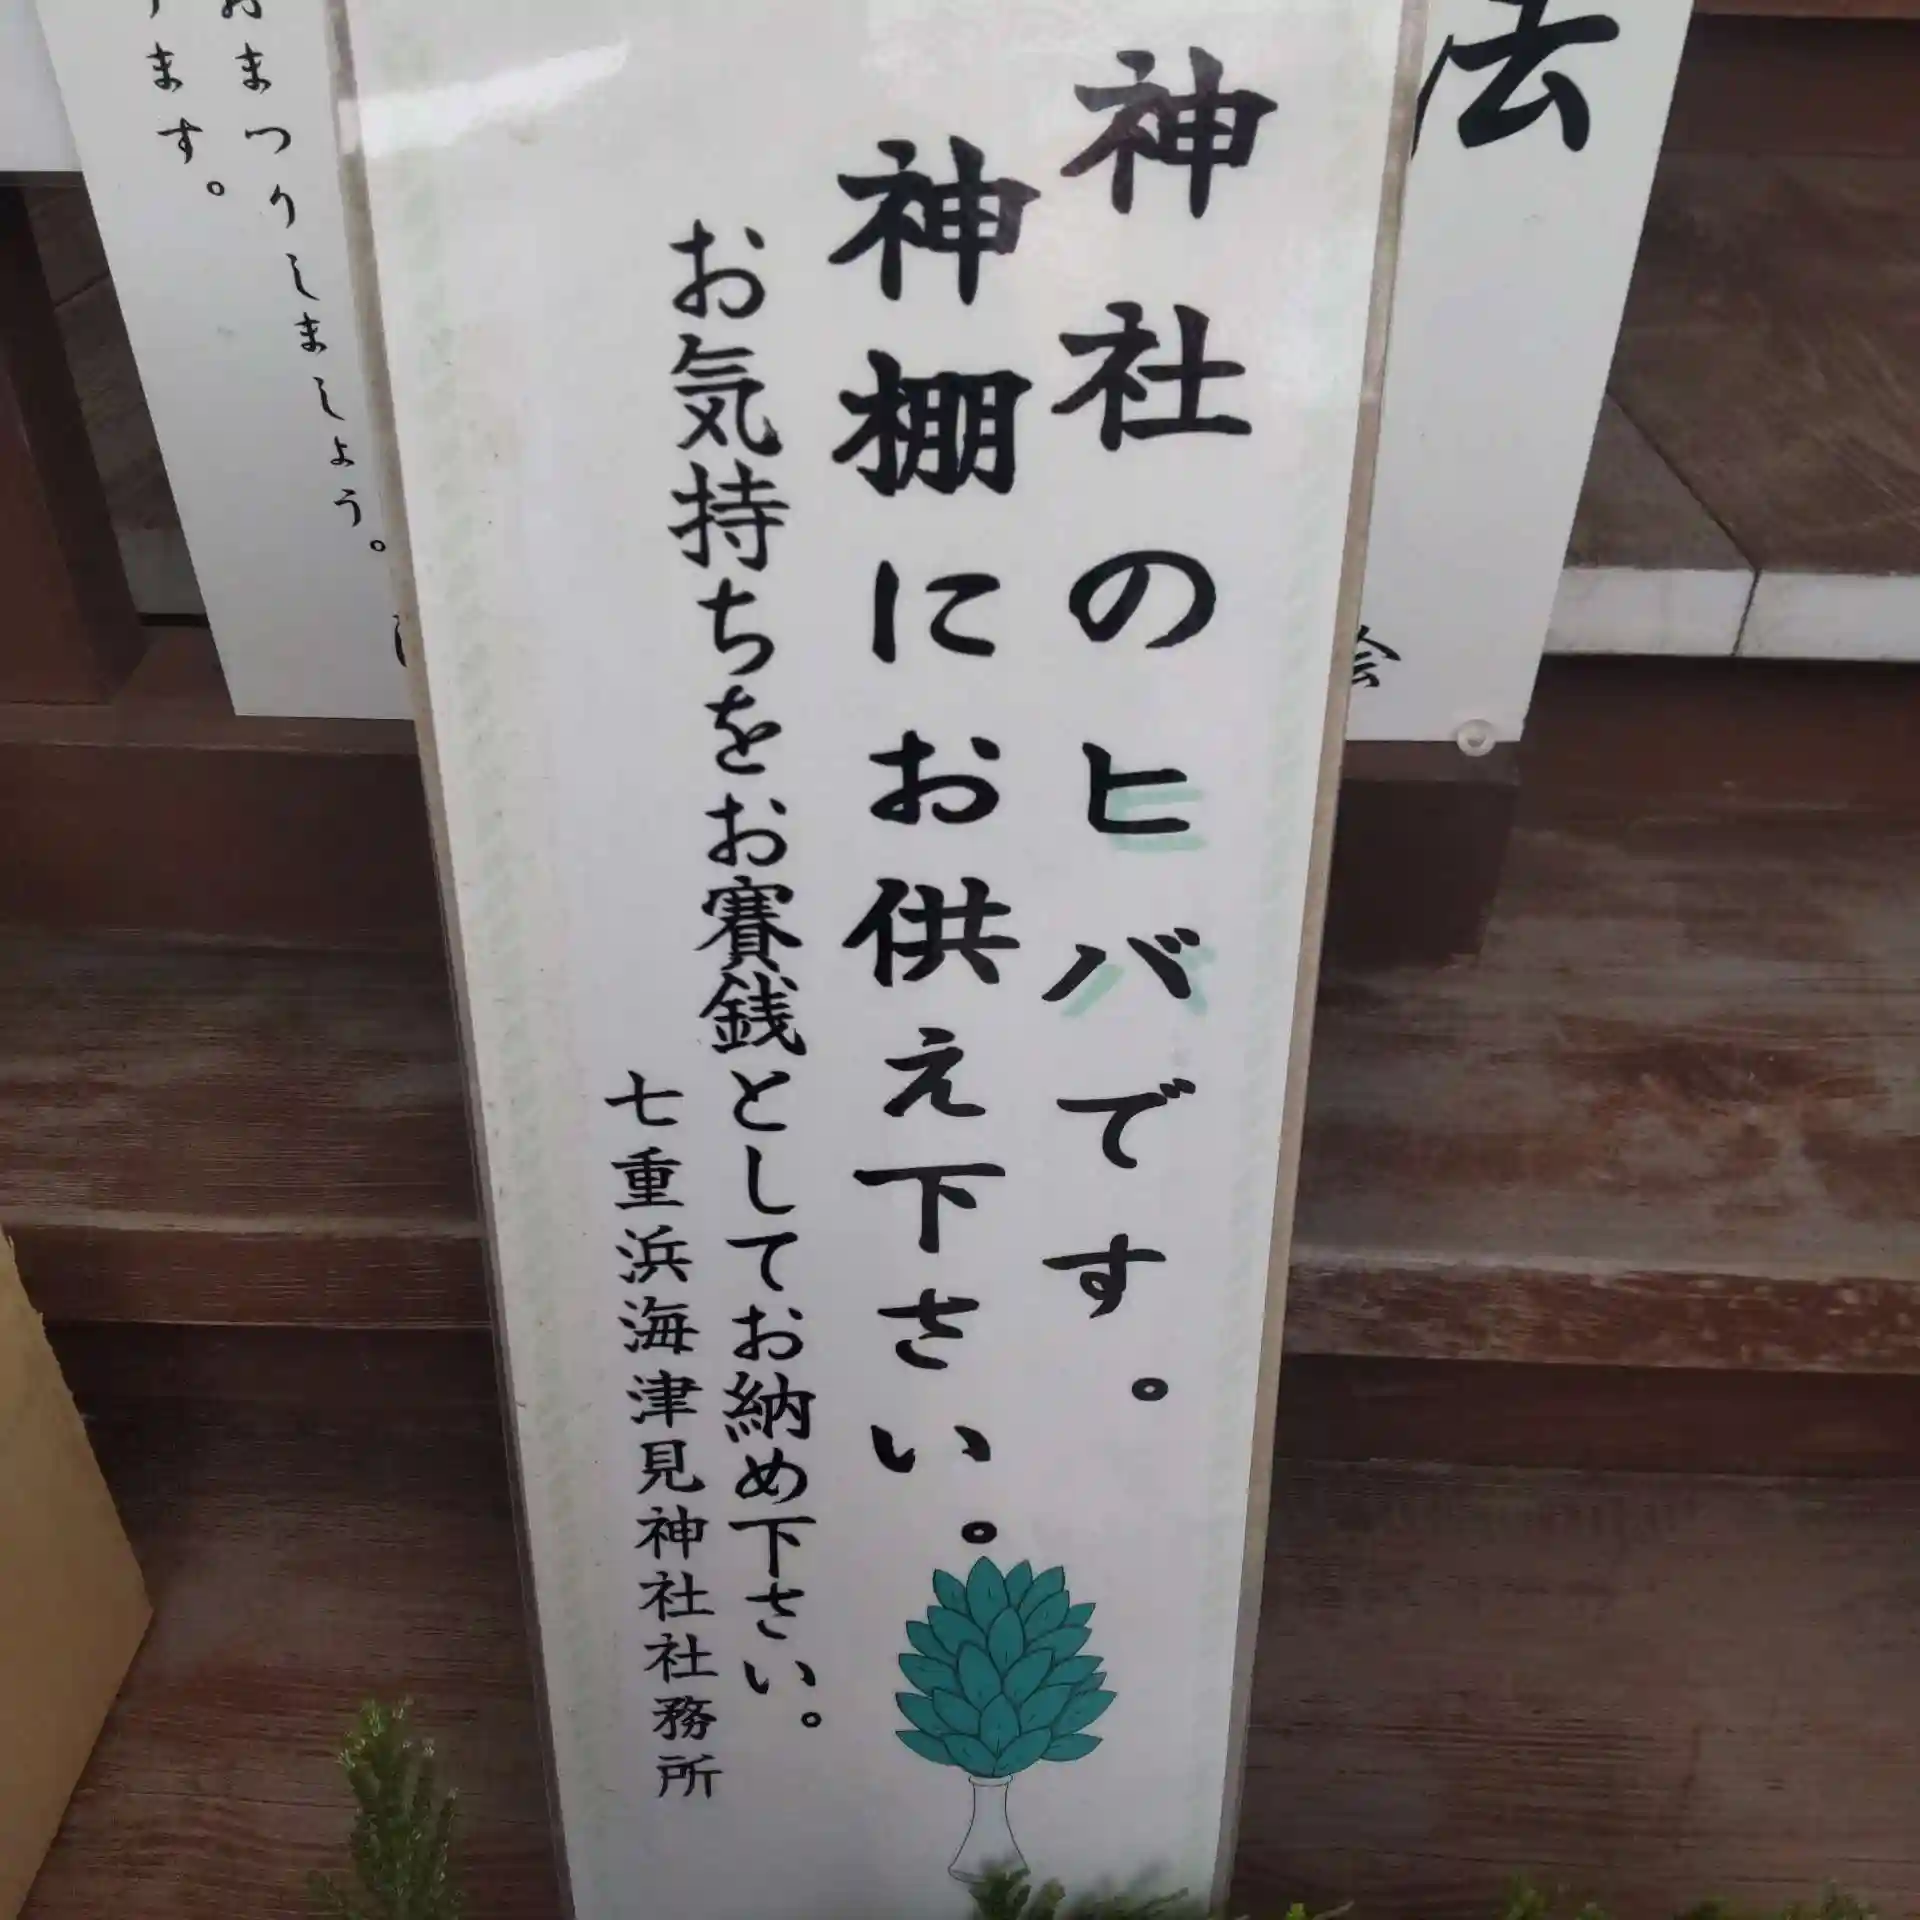 法
会
神社のヒバです。
神棚にお供え下さい。
お気持ちをお賽銭としてお納め下さい。
七重浜海津見神社社務所
おまつりしましょう。
ます。